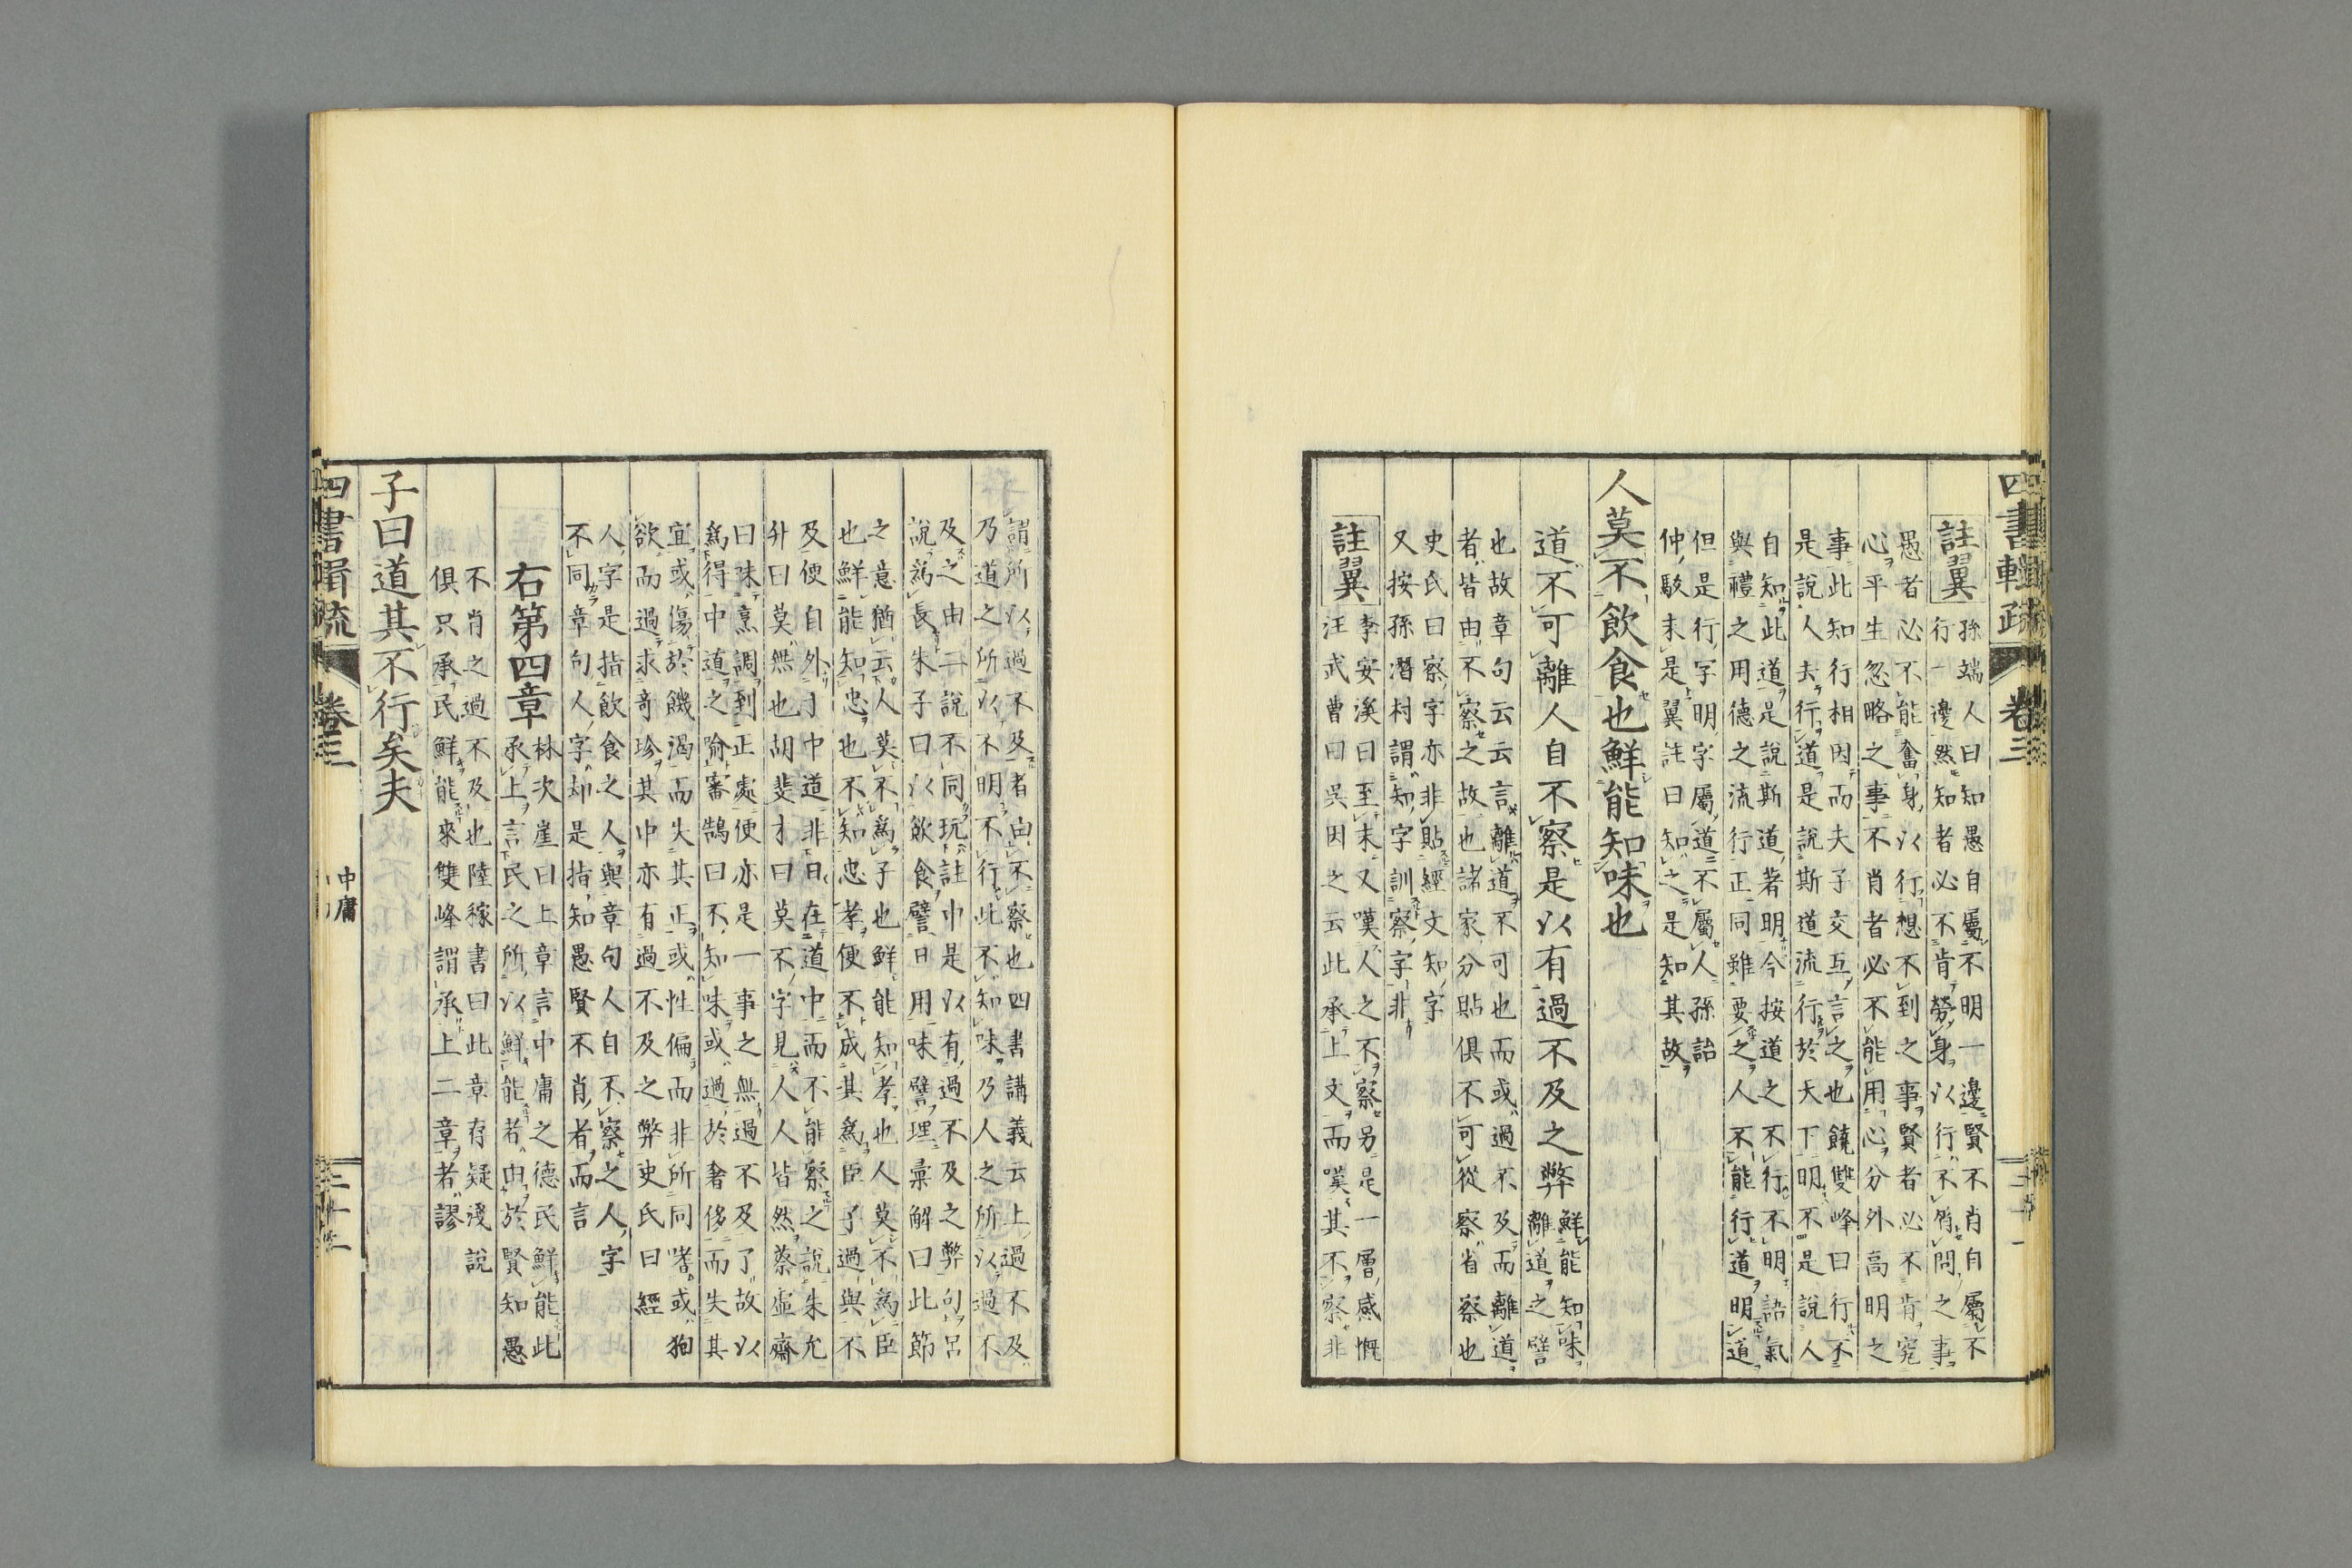 四書輯疏
卷三
註翼
孫端人曰知愚自屬不明一邊賢不肖自屬不
行一邊然知者必不肯勞身以行不屑問之事
愚者必不能奮身以行想不到之事賢者必不肯究
心平生忽略之事不肖者必不能用心分外高明之
事此知行相因而夫子交互言之也饒雙峰曰行不
是說人去行道是說斯道流行於天下明不是說人
自知此道是說斯道著明今按道之不行不明語氣
與禮之用德之流行正同雖要之人不能行道明道
但是行字明字屬道不屬人孫詒
仲駁末是翼註曰知之是知其故
人莫不飲食也鮮能知味也
道不可離人自不察是以有過不及之弊
鮮能知味
離道之譬
也故章句云云言離道不可也而或過不及而離道
者皆由不察之故也諸家分貼俱不可從察省察也
史氏曰察字亦非貼經文知字
又按孫潛村謂知字訓察字非
註翼
李安溪曰至末又嘆人之不察另是一層感慨
汪武曹曰吳因之云此承上文而嘆其不察非
謂所以過不及者由不察也四書講義云上過不及
乃道之所以不明不行此不知味乃人之所以過不
及之由二說不同玩註中是以有過不及之弊句呂
說爲長朱子曰以飲食譬日用味譬理彙解曰此節
之意猶云人莫不爲子也鮮能知孝也人莫不爲臣
也鮮能知忠也不知忠孝便不成其爲臣子過與不
及便自外于中道非日在道中而不能察之說朱允
升曰莫無也胡斐才曰莫不字見人人皆然蔡虛齋
曰味烹調到正處便亦是一事之無過不及了故以
爲得中道之喻審鵠曰不知味或過於奢侈而失其
宜或傷於饑渴而失其正或性偏而非所同嗜或狥
欲而過求奇珍其中亦有過不及之弊史氏曰經
人字是指飲食之人與章句人自不察之人字
不同章句人字却是指知愚賢不肖者而言
右第四章
林次崖曰上章言中庸之德民鮮能此
承上言民之所以鮮能者由於賢知愚
不肖之過不及也陸稼書曰此章存疑淺說
俱只承民鮮能來雙峰謂承上二章者謬
子曰道其不行矣夫
四書輯疏
卷三
中庸
三十二